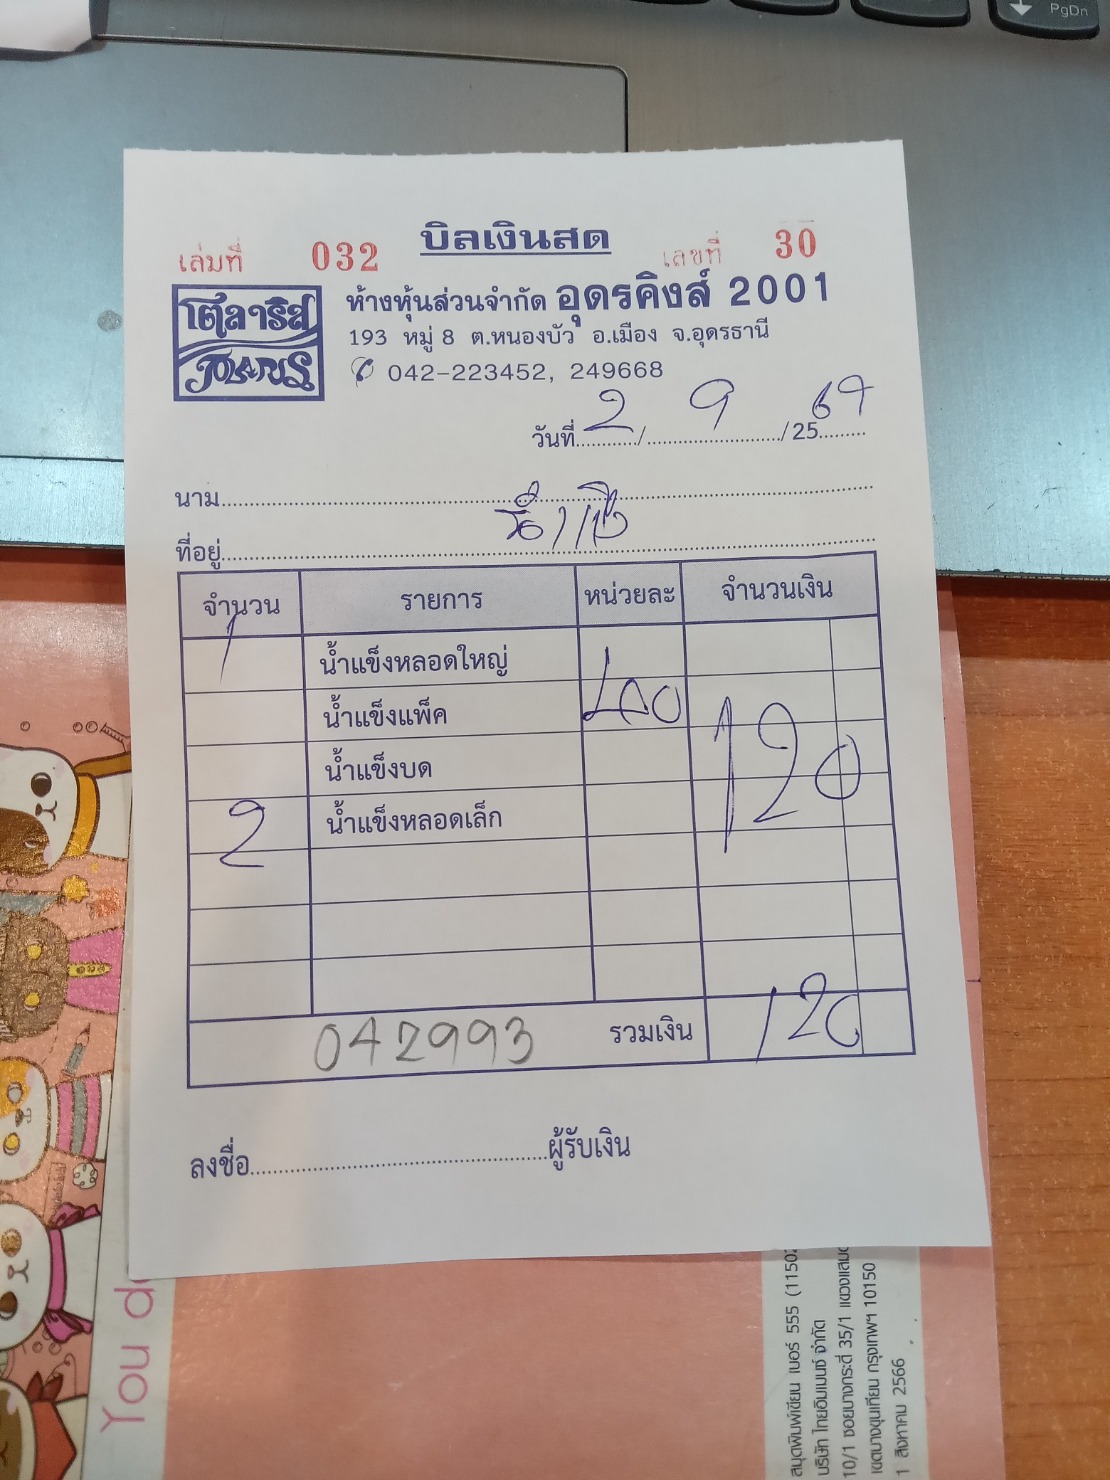 PgDn
บิลเงินสด
เล่มที่ 032 เลขที่ 30
โตลาริส
TOLARIS
ห้างหุ้นส่วนจำกัด อุดรคิงส์ 2001
193 หมู่ 8 ต.หนองบัว อ.เมือง จ.อุดรธานี
042-223452, 249668
วันที่ 2 / 9 / 25 69
นาม
ที่อยู่
จำนวน รายการ หน่วยละ จำนวนเงิน
1 น้ำแข็งหลอดใหญ่
น้ำแข็งแพ็ค
น้ำแข็งบด 120
2 น้ำแข็งหลอดเล็ก
042993 รวมเงิน 120
ลงชื่อ ผู้รับเงิน
You d
สมุดพิมพ์เขียน เบอร์ 555 (1150
บริษัท ไทยอิมเมนซ์ จำกัด
10/1 ซอยบางกระดี่ 35/1 แขวงแสม
เขตบางขุนเทียน กรุงเทพฯ 10150
1 สิงหาคม 2566